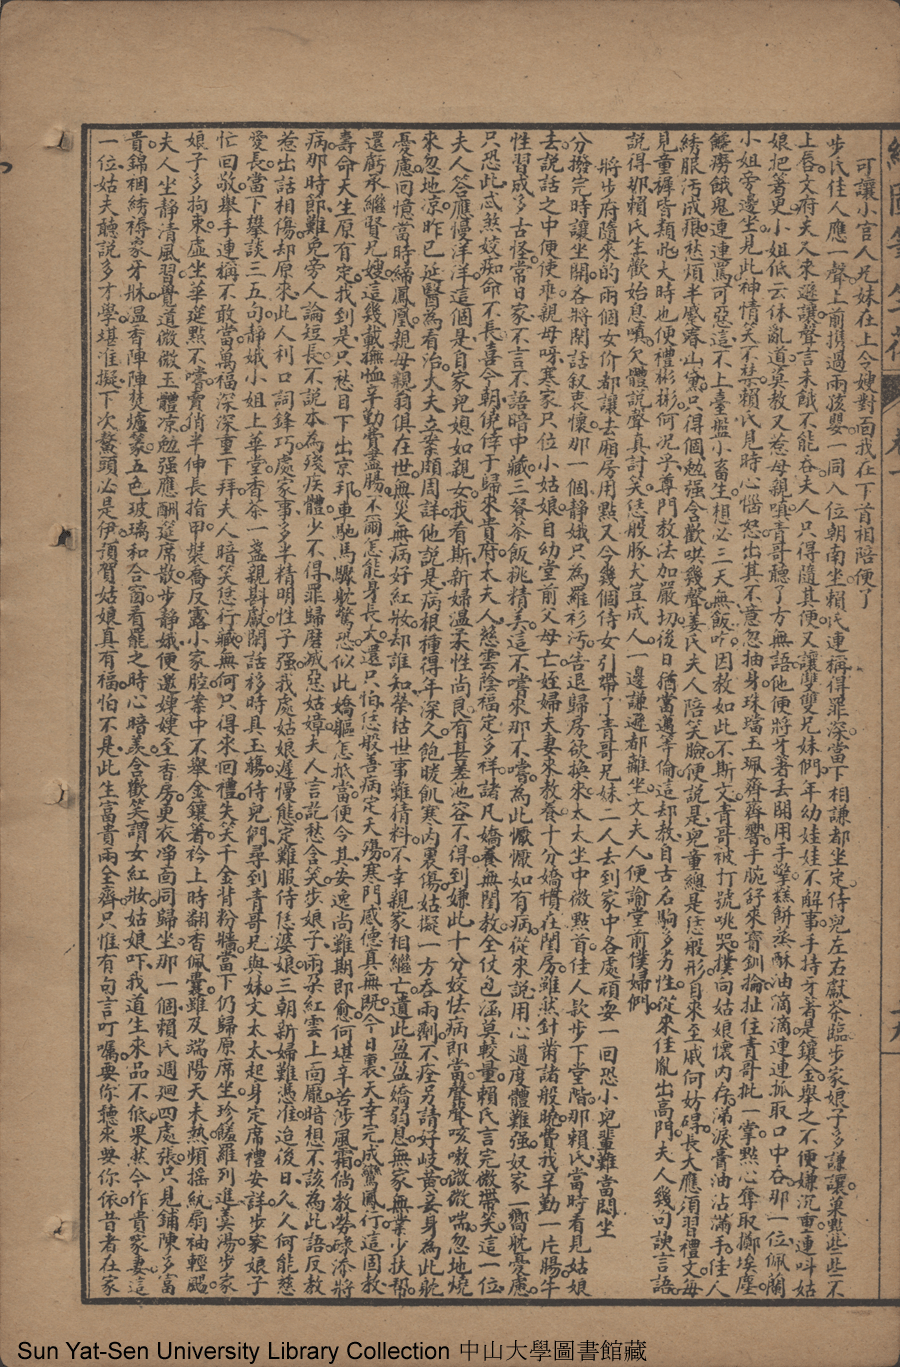 可讓小官人兄妹在上令嫂對面我在下首相陪便了
步氏佳人應一聲上前携過兩孩嬰一同入位朝南坐賴氏連稱得罪深當下相謙都坐定侍兒左右獻茶臨步家娘子多謙讓菓點些些不
上唇文府夫人又來遜讓聲言未餓不能吞夫人只得隨其便又讓雙雙兄妹們年幼娃娃不解事手持牙著是鑲金舉之不便嫌沉重連叫姑
娘把著更小姐低云休亂道莫教又惹母親嗔青哥聽了方無語他便將牙著去開用手擎糕餅蒸酥油滴滴連連抓取口中吞那一位佩蘭
小姐旁邊坐見此神情笑不禁賴氏見時心惱怒出其不意忽抽身珠璫玉珮齊齊響手腕舒來寶釧掄扯住青哥批一掌點心奪取擲埃塵
饞癆餓鬼連連罵可惡這不上臺盤小畜生想必三天無飯吃因教如此不斯文青哥被打號咷哭撲向姑娘懷內存涕淚膏油沾滿手佳人
綉服汚成痕愁煩半蹙春山黛只得個勉强含歡哄幾聲姜氏夫人陪笑臉便說是兒童總是恁般形自來至戚何妨碍長大應須習禮文每
見童穉皆類此大時也便禮彬彬何況乎尊門教法加嚴切後日猶當邁等倫這却教自古名駒多劣性從來佳胤出高門夫人幾句諛言語
說得那賴氏生歡始息嗔欠體說聲真討笑恁般豚犬豈成人一邊謙遜都離坐文夫人便諭堂前僕婦們
將步府隨來的兩個女价都讓去廂房用點又令幾個侍女引帶了青哥兄妹二人去到家中各處頑耍一回恐小兒輩難當悶坐
分撥完時讓坐開各將閑話叙衷懷那一個靜娥只為羅衫汚告退歸房欲換來太太坐中微點首佳人款步下堂階那賴氏當時看見姑娘
去說話之中便使乖親母呀寒家只位小姑娘自幼堂前父母亡姪婦夫妻來教養十分嬌慣在閨房雖然針黹諸般曉費我辛勤一片腸牛
性習成多古怪常日家不言不語暗中藏三餐茶飯挑精美這不嘗來那不嘗為此懨懨如有病從來說用心過度體難强奴家一嚮耽憂慮
只恐此忒煞姣痴命不長喜今朝僥倖于歸來貴府太夫人慈雲陰福定多祥諸凡嬌養無閨教全仗包涵莫較量賴氏言完微帶笑這一位
夫人答應慢洋洋這個是自家兒媳如親女我看斯新婦溫柔性尚良有甚差池容不得到嫌此十分姣怯病郎當聲聲咳嗽微微喘忽地燒
來忽地凉昨已延醫為看治大夫立案頗周詳他說是病根種得年深久飽暖飢寒內裏傷姑擬一方吞兩劑不痊另請好岐黃妾身為此躭
憂慮回憶當時締鳳凰親母親翁俱在世無災無病好紅妝却誰知榮枯世事難猜料不幸親家相繼亡遺此盈盈嬌弱息無家無業少扶帮
還虧承繼賢兄嫂這幾載撫恤辛勤費盡腸不爾怎能身長大還只怕恁般善病定夭殤寒門感德真無既今日裏天幸完成鸞鳳行這固教
壽命天生原有定我到是只愁目下出京邦車馳馬驟躭驚恐似此嬌軀怎抵當便令其安逸尚難期即愈何堪辛苦涉風霜倘教勞碌添將
病那時節難免旁人論短長不說本為殘疾體少不得罪歸磨滅惡姑嫜夫人言訖愁含笑步娘子兩朵紅雲上面龐暗想不該為此語反教
惹出話相傷却原來此人利口詞鋒巧處家事多半精明性子强我處姑娘遲慢態定難服侍恁婆娘三朝新婦難憑准迨後日久人何能慈
愛長當下攀談三五句靜娥小姐上華堂香茶一盞親斟獻閑話移時具玉觴侍兒們尋到青哥兄與妹文太太起身定席禮安詳步家娘子
忙回敬舉手連稱不敢當萬福深深重下拜夫人暗笑恁行藏無何只得來回禮失笑千金背粉牆當下仍歸原席坐珍饈羅列進羹湯步家
娘子多拘束虛坐華筵點不嘗費俏半伸長指甲裝喬反露小家腔案中不舉金鑲著衿上時翻香佩囊雖及端陽天未熱頻搖紈扇袖輕颺
夫人坐靜清風習覺道微微玉體凉勉强應酬筵席散步靜娥便邀嫂嫂至香房更衣凈面同歸坐那一個賴氏週廻四處張只見鋪陳多富
貴錦裀綉褥家牙牀溫香陣陣焚爐篆五色玻璃和合窗看罷之時心暗羡含歡笑謂女紅妝姑娘吓我道生來品不低果然今作貴家妻這
一位姑夫聽說多才學堪准擬下次鰲頭必是伊頂賀姑娘真有福怕不是此生富貴兩全齊只惟有句言叮囑要你聽來與你依昔者在家
Sun Yat-Sen University Library Collection 中山大學圖書館藏